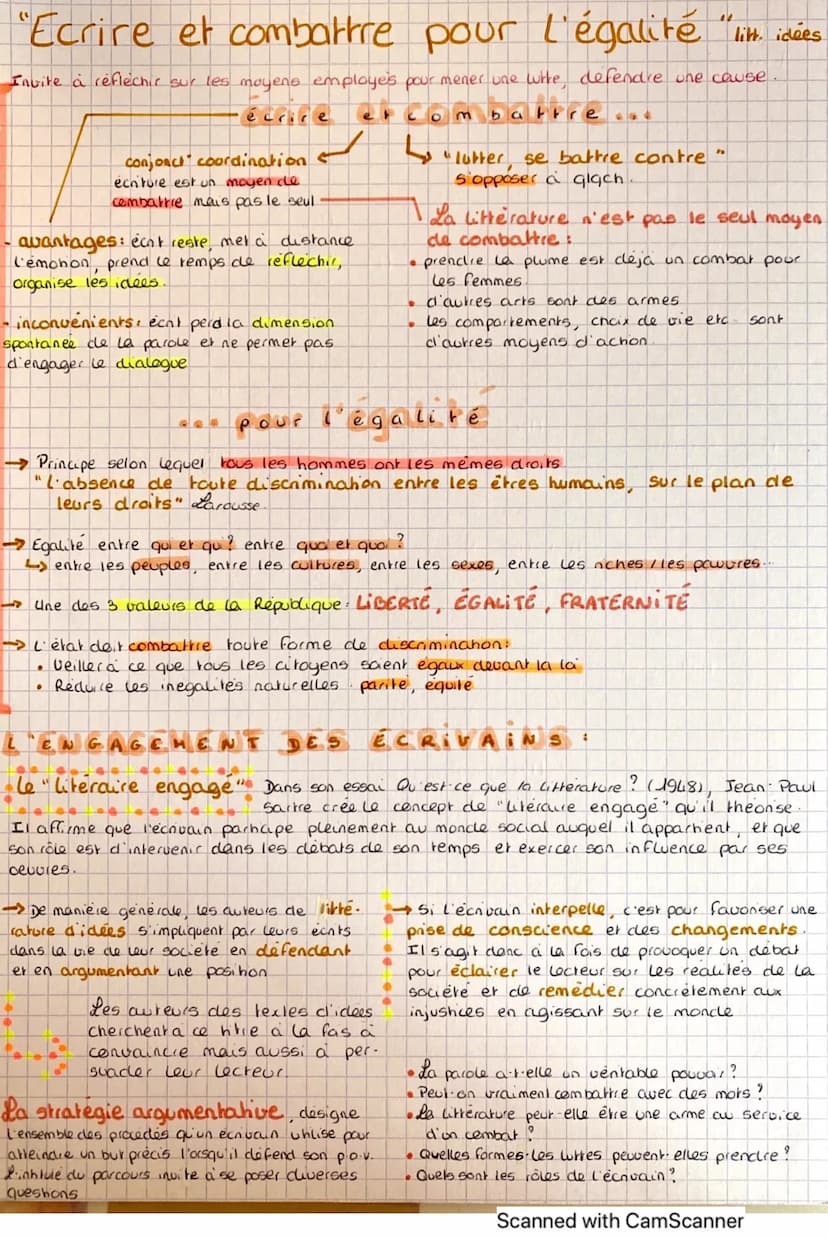 "Ecrire et combattre pour l'égalité" litt. idées
Invite à réfléchir sur les moyens employés pour mener une lutte, défendre une cause.
écrire et combattre...
conjonct° coordination
écriture est un moyen de
combattre mais pas le seul
"lutter, se battre contre"
s'opposer à qlqch.
- avantages: écrit reste, met à distance
l'émotion, prend le temps de réfléchir,
organise les idées.
- inconvénients: écrit perd la dimension
spontanée de la parole et ne permet pas
d'engager le dialogue
La littérature n'est pas le seul moyen
de combattre :
• prendre la plume est déjà un combat pour
les femmes.
• d'autres arts sont des armes
• les comportements, choix de vie etc. sont
d'autres moyens d'action.
... pour l'égalité
→ Principe selon lequel tous les hommes ont les mêmes droits
"L'absence de toute discrimination entre les êtres humains, sur le plan de
leurs droits" Larousse.
→ Egalité entre qui et qui? entre quoi et quoi?
↳ entre les peuples, entre les cultures, entre les sexes, entre les riches / les pauvres...
→ Une des 3 valeurs de la République: LIBERTÉ, ÉGALITÉ, FRATERNITÉ
→ L'état doit combattre toute forme de discrimination:
• Veiller à ce que tous les citoyens soient égaux devant la loi
• Réduire les inégalités naturelles : parité, équité
L'ENGAGEMENT DES ÉCRIVAINS :
Le "litéraire engagé": Dans son essai Qu'est-ce que la Littérature? (1948), Jean-Paul
Sartre crée le concept de "litéraire engagé" qu'il théorise.
Il affirme que l'écrivain participe pleinement au monde social auquel il appartient, et que
son rôle est d'intervenir dans les débats de son temps et exercer son influence par ses
oeuvres.
→ De manière générale, les auteurs de litté-
rature d'idées s'impliquent par leurs écrits
dans la vie de leur société en défendant
et en argumentant une position
Les auteurs des textes d'idées
cherchent à ce titre à la fois à
convaincre mais aussi à per-
suader leur lecteur.
La stratégie argumentative, désigne
l'ensemble des procédés qu'un écrivain utilise pour
atteindre un but précis lorsqu'il défend son p.o.v.
L'intitulé du parcours invite à se poser diverses
questions
→ Si l'écrivain interpelle, c'est pour favoriser une
prise de conscience et des changements.
Il s'agit donc à la fois de provoquer un débat
pour éclairer le lecteur sur les réalités de la
société et de remédier concrètement aux
injustices en agissant sur le monde
• La parole a-t-elle un véritable pouvoir?
• Peut-on vraiment combattre avec des mots?
• La littérature peut-elle être une arme au service
d'un combat?
• Quelles formes les luttes peuvent-elles prendre?
• Quels sont les rôles de l'écrivain?
Scanned with CamScanner